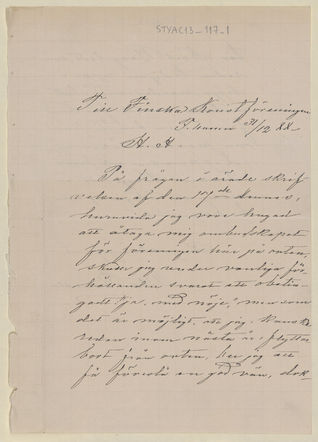 STYAC13_117_1
Till Finska Konstföreningen
F:hamn 31/12 88.
H. H.
På frågan i ärade skrif
velsen af den 17de dennes,
huruvida jag vore hugad
att åtaga mig ombudskapet
för föreningen här på orten,
skulle jag under vanliga för
hållanden svarat ett obetin
gadt "ja, med nöje", men som
det är möjligt, att jag kanske
redan inom nästa år flyttar
bort från orten, ber jag att
få föreslå en god vän, dok-